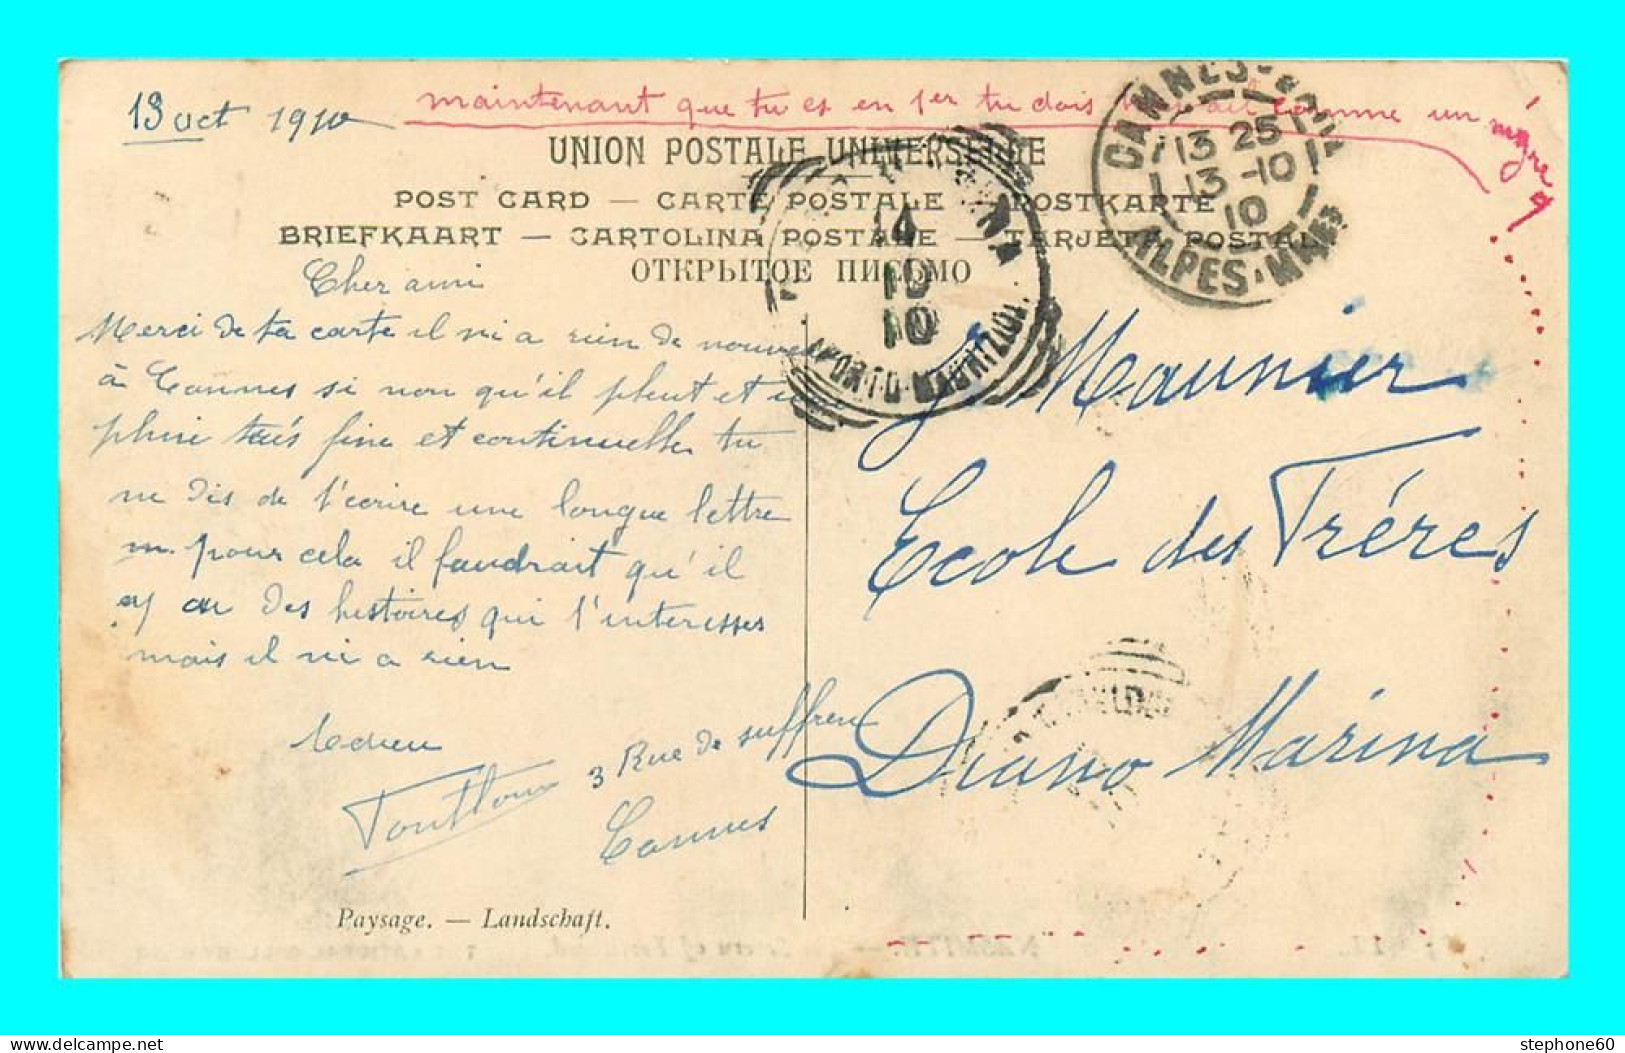 13 oct 1910
maintenant que tu es en 1er tu dois comme un nègre
UNION POSTALE UNIVERSELLE
POST CARD — CARTE POSTALE — POSTKARTE
BRIEFKAART — CARTOLINA POSTALE — TARJETA POSTAL
ОТКРЫТОЕ ПИСЬМО
CANNES
13 25
13 -10
10
ALPES-MMES
14
10
10
PORTO MAURIZIO
Cher ami
Merci de ta carte il ni a rien de nouveau
à Cannes si non qu'il pleut et une
pluie très fine et continuelle tu
me dis de t'ecrire une longue lettre
m. pour cela il faudrait qu'il
y ai des histoires qui t'interesses
mais il ni a rien
Adieu
3 Rue de suffren
Cannes
J Maunier
Ecole des Fréres
Diano Marina
Paysage. — Landschaft.
stephone60